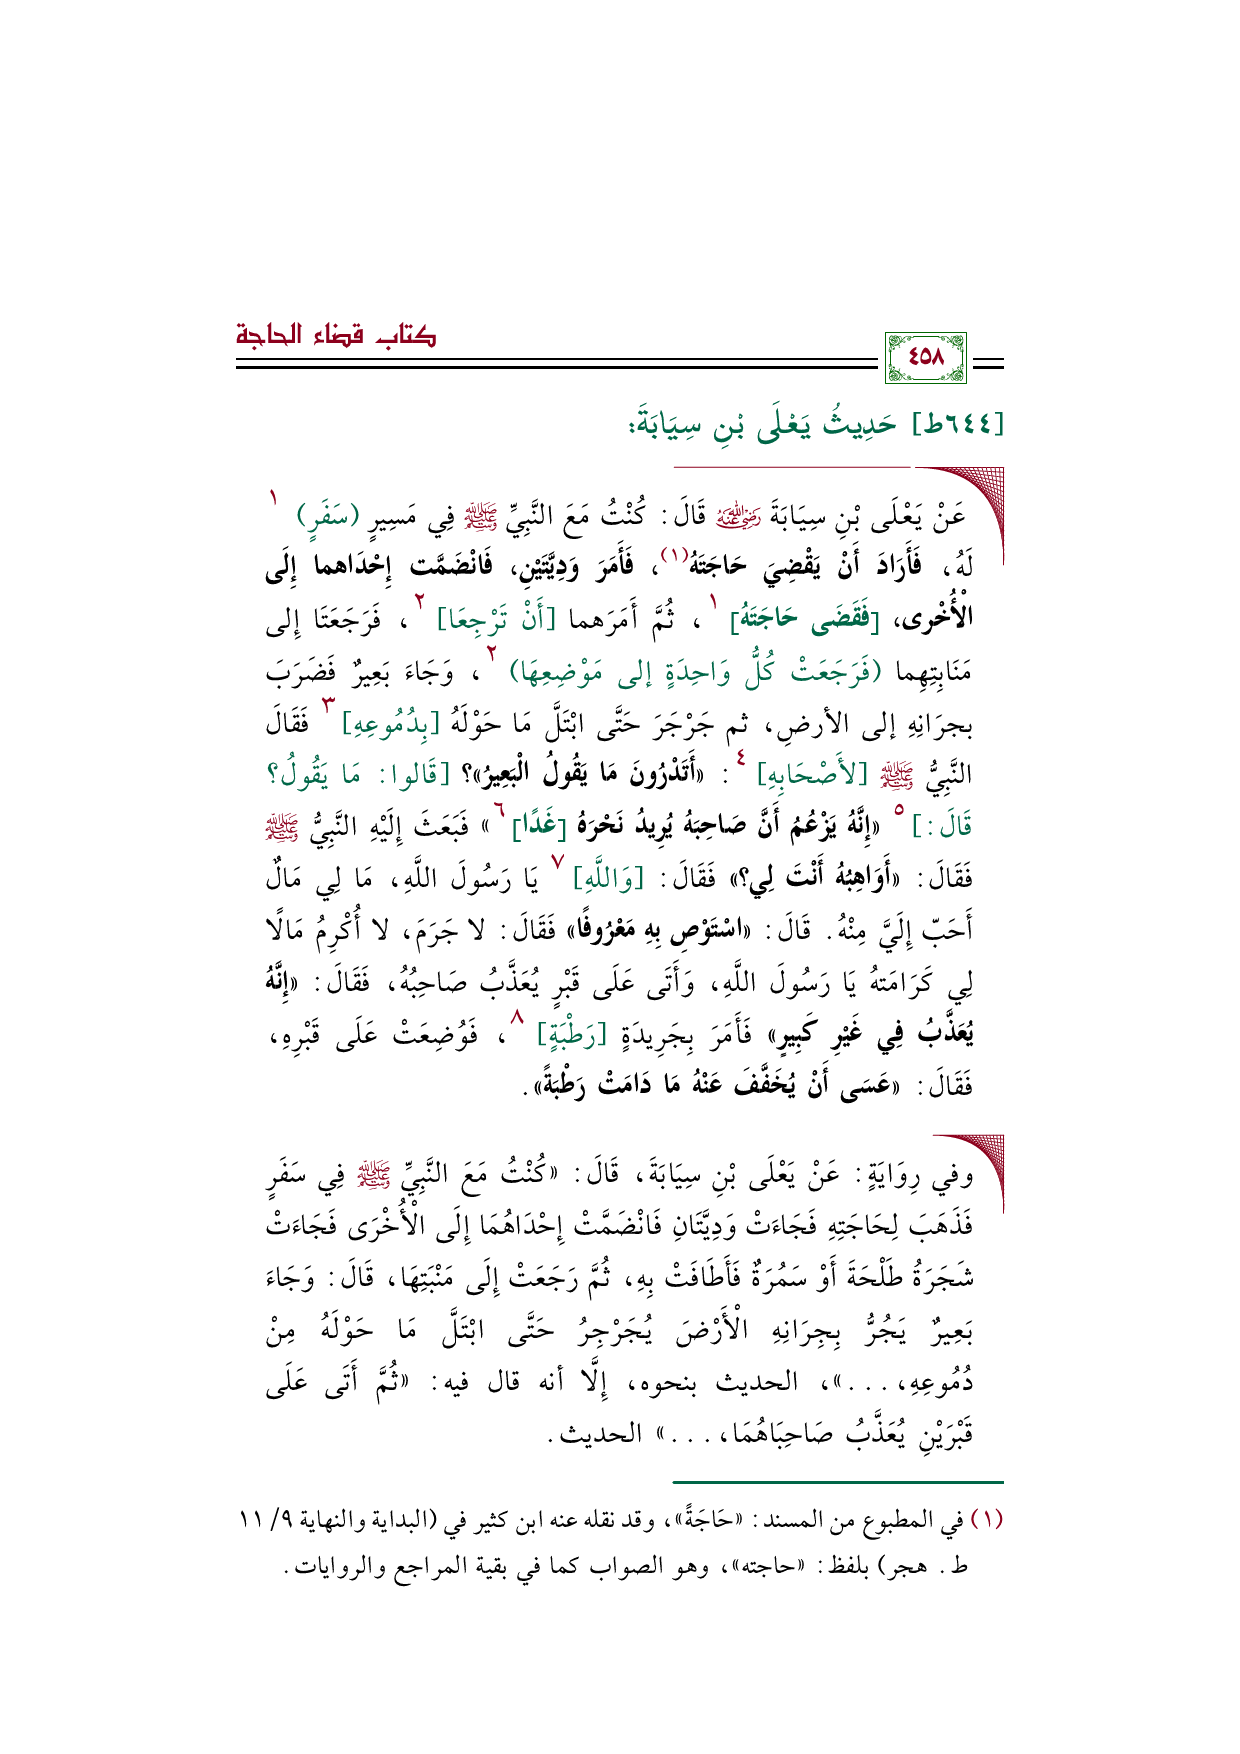 كتاب قضاء الحاجة
٤٥٨
[٦٤٤ط] حَدِيثُ يَعْلَى بْنِ سِيَابَةَ:
عَنْ يَعْلَى بْنِ سِيَابَةَ ﵁ قَالَ: كُنْتُ مَعَ النَّبِيِّ ﷺ فِي مَسِيرٍ (سَفَرٍ) ١
لَهُ، فَأَرَادَ أَنْ يَقْضِيَ حَاجَتَهُ(١)، فَأَمَرَ وَدِيَّتَيْنِ، فَانْضَمَّت إِحْدَاهما إِلَى
الْأُخْرى، [فَقَضَى حَاجَتَهُ] ١، ثُمَّ أَمَرَهما [أَنْ تَرْجِعَا] ٢، فَرَجَعَتَا إِلى
مَنَابِتِهِما (فَرَجَعَتْ كُلُّ وَاحِدَةٍ إلى مَوْضِعِهَا) ٢، وَجَاءَ بَعِيرٌ فَضَرَبَ
بجرَانِهِ إلى الأرضِ، ثم جَرْجَرَ حَتَّى ابْتَلَّ مَا حَوْلَهُ [بِدُمُوعِهِ] ٣ فَقَالَ
النَّبِيُّ ﷺ [لأَصْحَابِهِ] ٤: «أَتَدْرُونَ مَا يَقُولُ الْبَعِيرُ»؟ [قَالوا: مَا يَقُولُ؟
قَالَ:] ٥ «إِنَّهُ يَزْعُمُ أَنَّ صَاحِبَهُ يُرِيدُ نَحْرَهُ [غَدًا] ٦» فَبَعَثَ إِلَيْهِ النَّبِيُّ ﷺ
فَقَالَ: «أَوَاهِبُهُ أَنْتَ لِي؟» فَقَالَ: [وَاللَّهِ] ٧ يَا رَسُولَ اللَّهِ، مَا لِي مَالٌ
أَحَبّ إِلَيَّ مِنْهُ. قَالَ: «اسْتَوْصِ بِهِ مَعْرُوفًا» فَقَالَ: لا جَرَمَ، لا أُكْرِمُ مَالًا
لِي كَرَامَتهُ يَا رَسُولَ اللَّهِ، وَأَتَى عَلَى قَبْرٍ يُعَذَّبُ صَاحِبُهُ، فَقَالَ: «إِنَّهُ
يُعَذَّبُ فِي غَيْرِ كَبِيرٍ» فَأَمَرَ بِجَرِيدَةٍ [رَطْبَةٍ] ٨، فَوُضِعَتْ عَلَى قَبْرِهِ،
فَقَالَ: «عَسَى أَنْ يُخَفَّفَ عَنْهُ مَا دَامَتْ رَطْبَةً».
وفي رِوَايَةٍ: عَنْ يَعْلَى بْنِ سِيَابَةَ، قَالَ: «كُنْتُ مَعَ النَّبِيِّ ﷺ فِي سَفَرٍ
فَذَهَبَ لِحَاجَتِهِ فَجَاءَتْ وَدِيَّتَانِ فَانْضَمَّتْ إِحْدَاهُمَا إِلَى الْأُخْرَى فَجَاءَتْ
شَجَرَةُ طَلْحَةَ أَوْ سَمُرَةٌ فَأَطَافَتْ بِهِ، ثُمَّ رَجَعَتْ إِلَى مَنْبَتِهَا، قَالَ: وَجَاءَ
بَعِيرٌ يَجُرُّ بِجِرَانِهِ الْأَرْضَ يُجَرْجِرُ حَتَّى ابْتَلَّ مَا حَوْلَهُ مِنْ
دُمُوعِهِ،...»، الحديث بنحوه، إِلَّا أنه قال فيه: «ثُمَّ أَتَى عَلَى
قَبْرَيْنِ يُعَذَّبُ صَاحِبَاهُمَا،...» الحديث.
(١) في المطبوع من المسند: «حَاجَةً»، وقد نقله عنه ابن كثير في (البداية والنهاية ٩/ ١١
ط. هجر) بلفظ: «حاجته»، وهو الصواب كما في بقية المراجع والروايات.